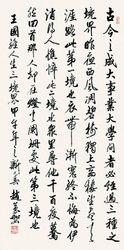 古今之成大事業大學問者必經過三種之
境界昨夜西風凋碧樹獨上高樓望盡天
涯路此第一境也衣帶漸寬終不悔為伊
消得人憔悴此第二境也眾里尋他千百度驀
然回首那人却在燈火闌珊處此第三境也
王國維人生三境界甲午年